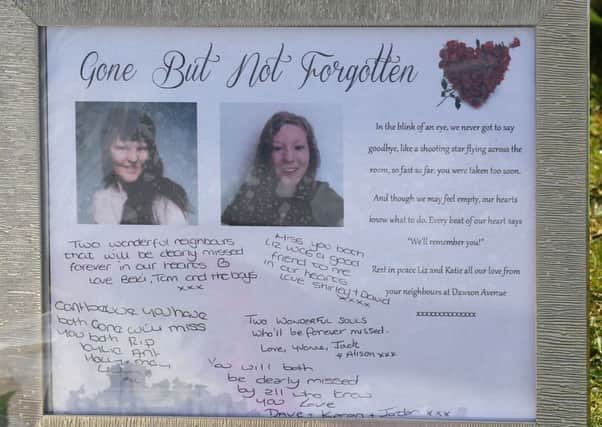 Gone But Not Forgotten
In the blink of an eye, we never got to say
goodbye, like a shooting star flying across the
room, so fast so far, you were taken too soon.
And though we may feel empty, our hearts
know what to do. Every beat of our heart says
"We'll remember you!"
Rest in peace Liz and Katie all our love from
your neighbours at Dawson Avenue
xxxxxxxxxxxxx
Two wonderful neighbours
that will be dearly missed
forever in our hearts
love Beki, Tom and the boys
xxx
Miss you both
Liz was a good
friend to me
in our hearts
love Shirley + David
xxxx
Cant believe you have
both Gone will miss
you both RIP
Ant
Two wonderful souls
who'll be forever missed.
Love, Yvonne, Jack
& Alison xxx
You will both
be dearly missed
by all who knew
you Love
Dave + Karen + Jordan xxx